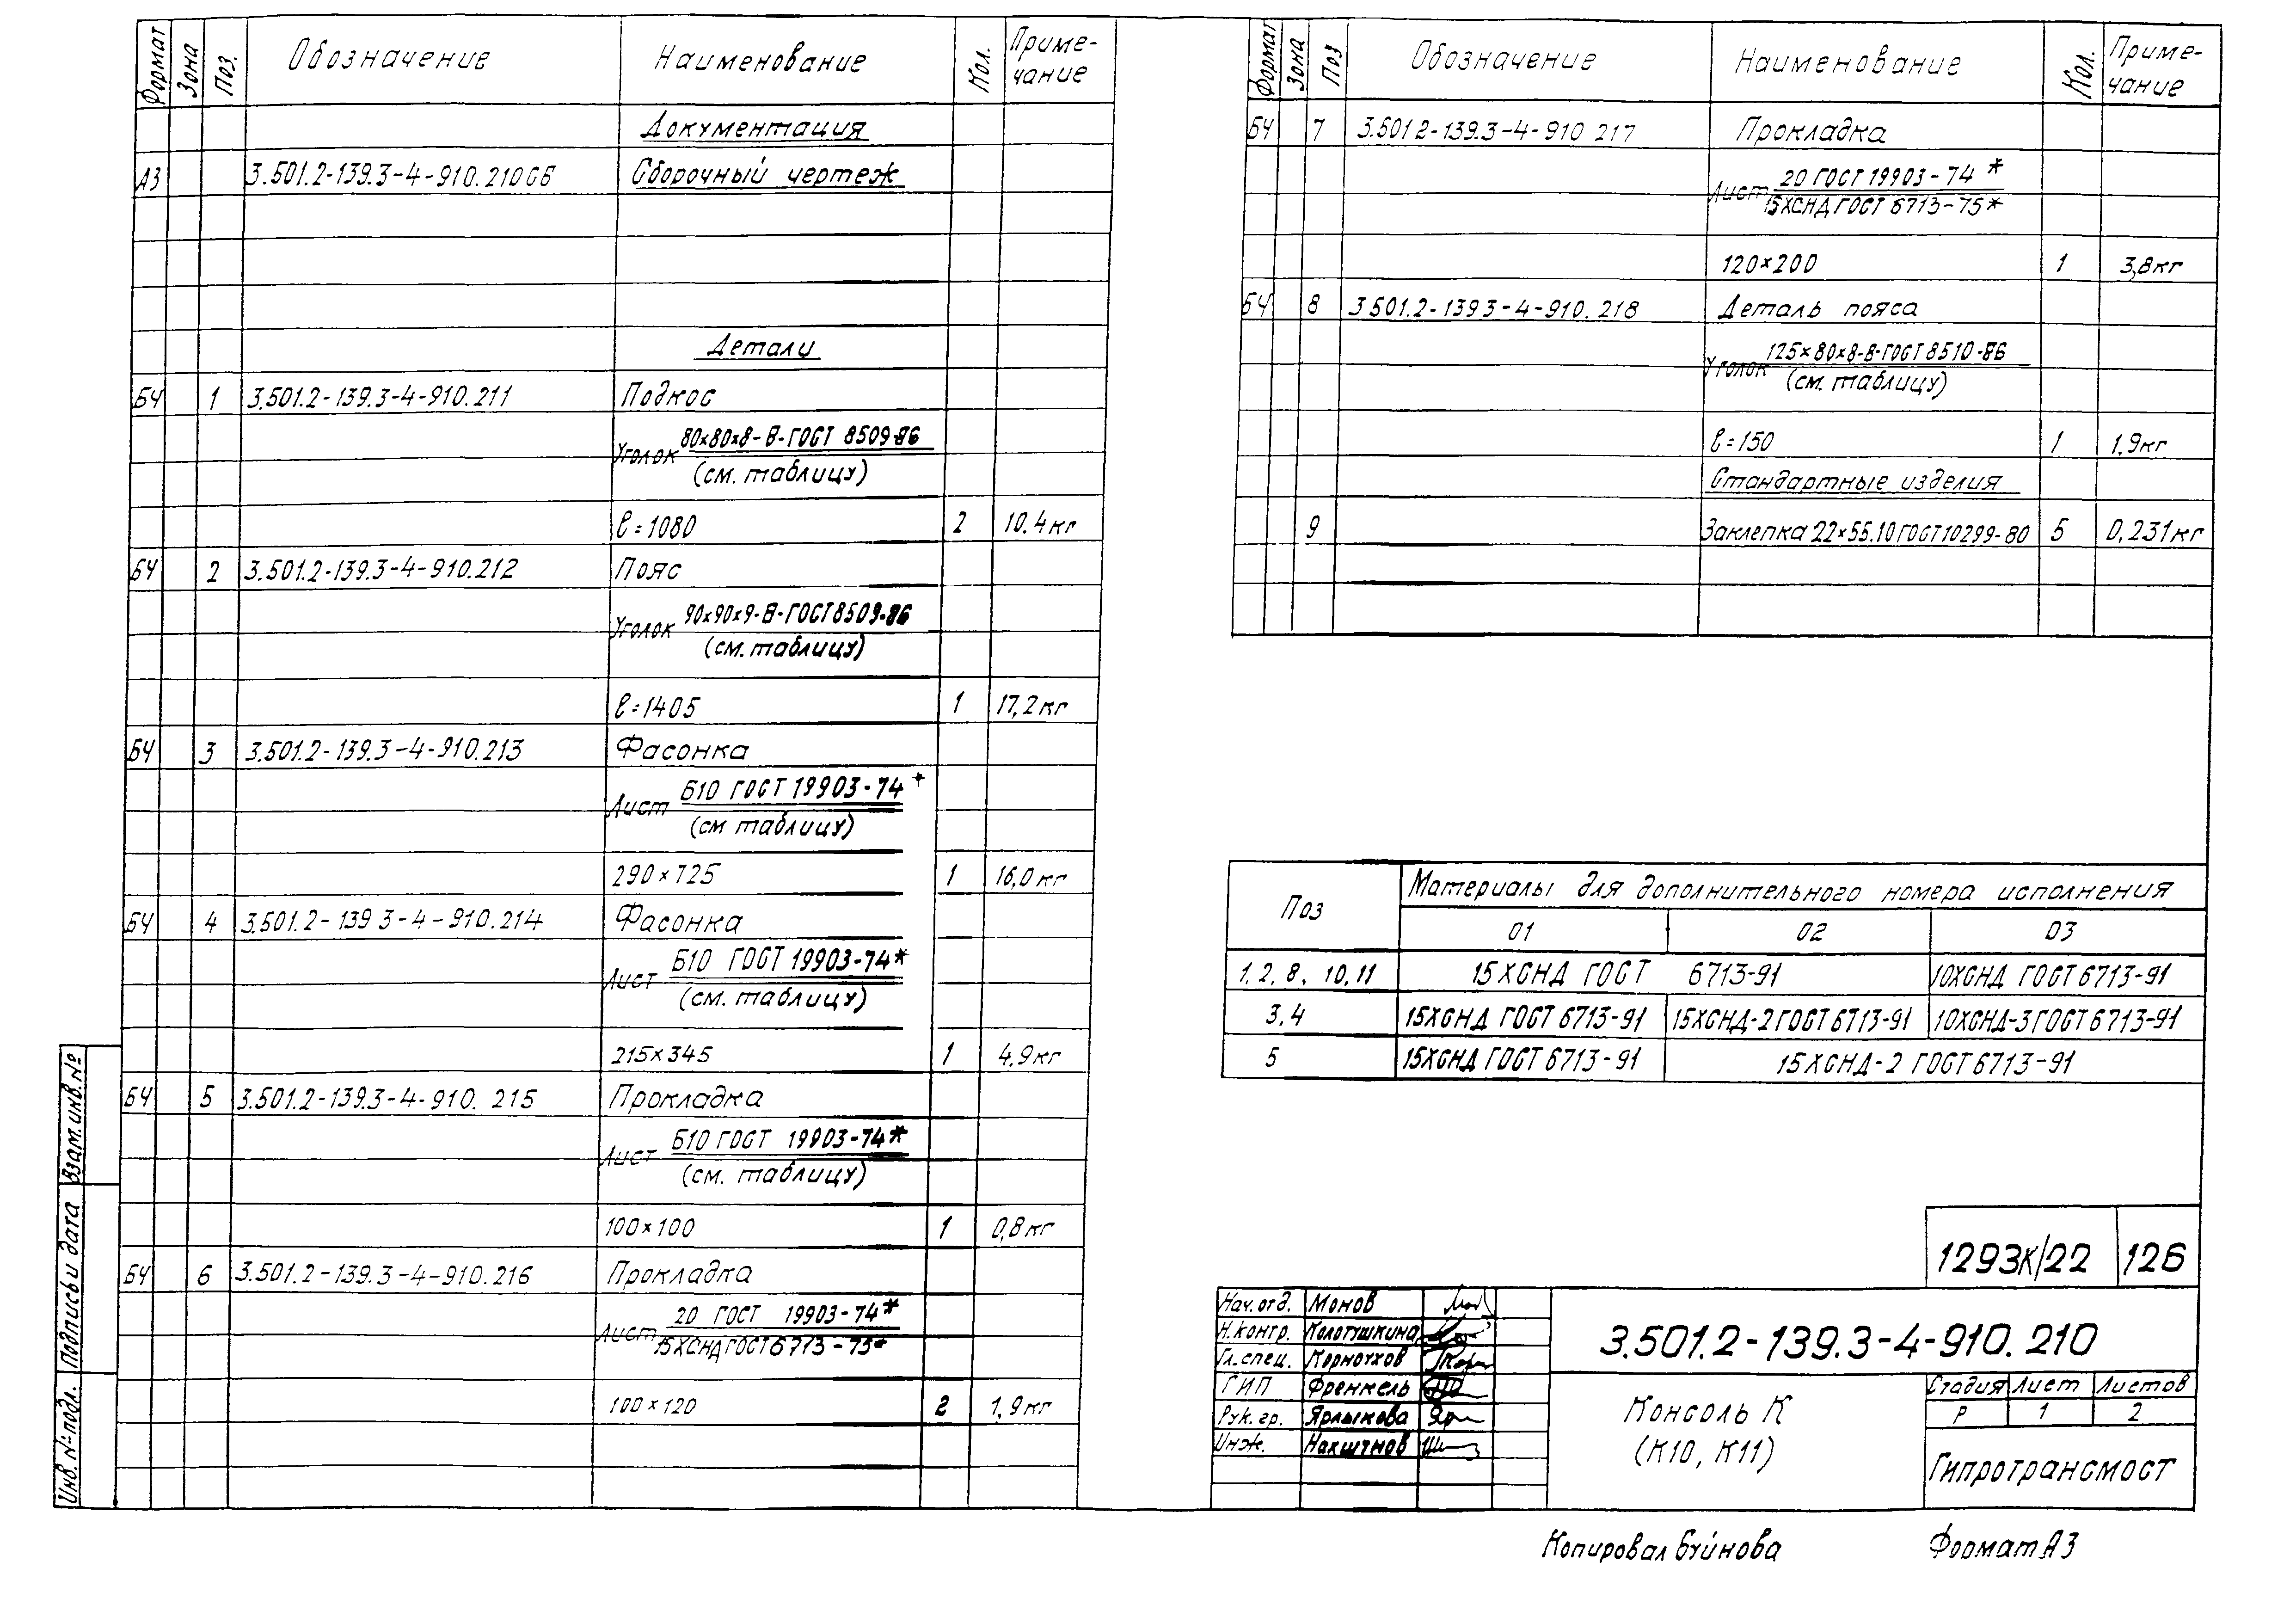 Формат Зона Поз. Обозначение Наименование Кол. Приме-
чание
Документация
А3 3.501.2-139.3-4-910.210СБ Сборочный чертеж
Детали
БЧ 1 3.501.2-139.3-4-910.211 Подкос
Уголок 80×80×8-В-ГОСТ 8509-86
(см. таблицу)
ℓ=1080 2 10.4кг
БЧ 2 3.501.2-139.3-4-910.212 Пояс
Уголок 90×90×9-В-ГОСТ 8509-86
(см. таблицу)
ℓ=1405 1 17,2кг
БЧ 3 3.501.2-139.3-4-910.213 Фасонка
Лист Б10 ГОСТ 19903-74*
(см таблицу)
290×725 1 16,0кг
БЧ 4 3.501.2-139 3-4-910.214 Фасонка
Лист Б10 ГОСТ 19903-74*
(см. таблицу)
215×345 1 4,9кг
БЧ 5 3.501.2-139.3-4-910. 215 Прокладка
Лист Б10 ГОСТ 19903-74*
(см. таблицу)
100×100 1 0,8кг
БЧ 6 3.501.2-139.3-4-910.216 Прокладка
Лист 20 ГОСТ 19903-74*
15ХСНД ГОСТ 6713-75*
100×120 2 1,9кг
Взам. инв. №
Подпись и дата
Инв. № подл.
Формат Зона Поз Обозначение Наименование Кол. Приме-
чание
БЧ 7 3.501 2-139.3-4-910 217 Прокладка
Лист 20 ГОСТ 19903-74*
15ХСНД ГОСТ 6713-75*
120×200 1 3,8кг
БЧ 8 3 501.2-139 3-4-910. 218 Деталь пояса
Уголок 125×80×8-В-ГОСТ 8510-86
(см. таблицу)
ℓ=150 1 1,9кг
Стандартные изделия
9 Заклепка 22×55.10 ГОСТ 10299-80 5 0,231кг
Поз Материалы для дополнительного номера исполнения
01 02 03
1, 2, 8, 10, 11 15ХСНД ГОСТ 6713-91 10ХСНД ГОСТ 6713-91
3, 4 15ХСНД ГОСТ 6713-91 15ХСНД-2 ГОСТ 6713-91 10ХСНД-3 ГОСТ 6713-91
5 15ХСНД ГОСТ 6713-91 15ХСНД-2 ГОСТ 6713-91
1293К/22 126
Нач. отд. Монов
Н.контр. Кологушкина
Гл. спец. Корноухов
ГИП Френкель
Рук. гр. Ярлыкова
Инж.
3.501.2-139.3-4-910.210
Консоль К
(К10, К11)
Стадия Лист Листов
Р 1 2
Гипротрансмост
Копировал Буйнова Формат А3